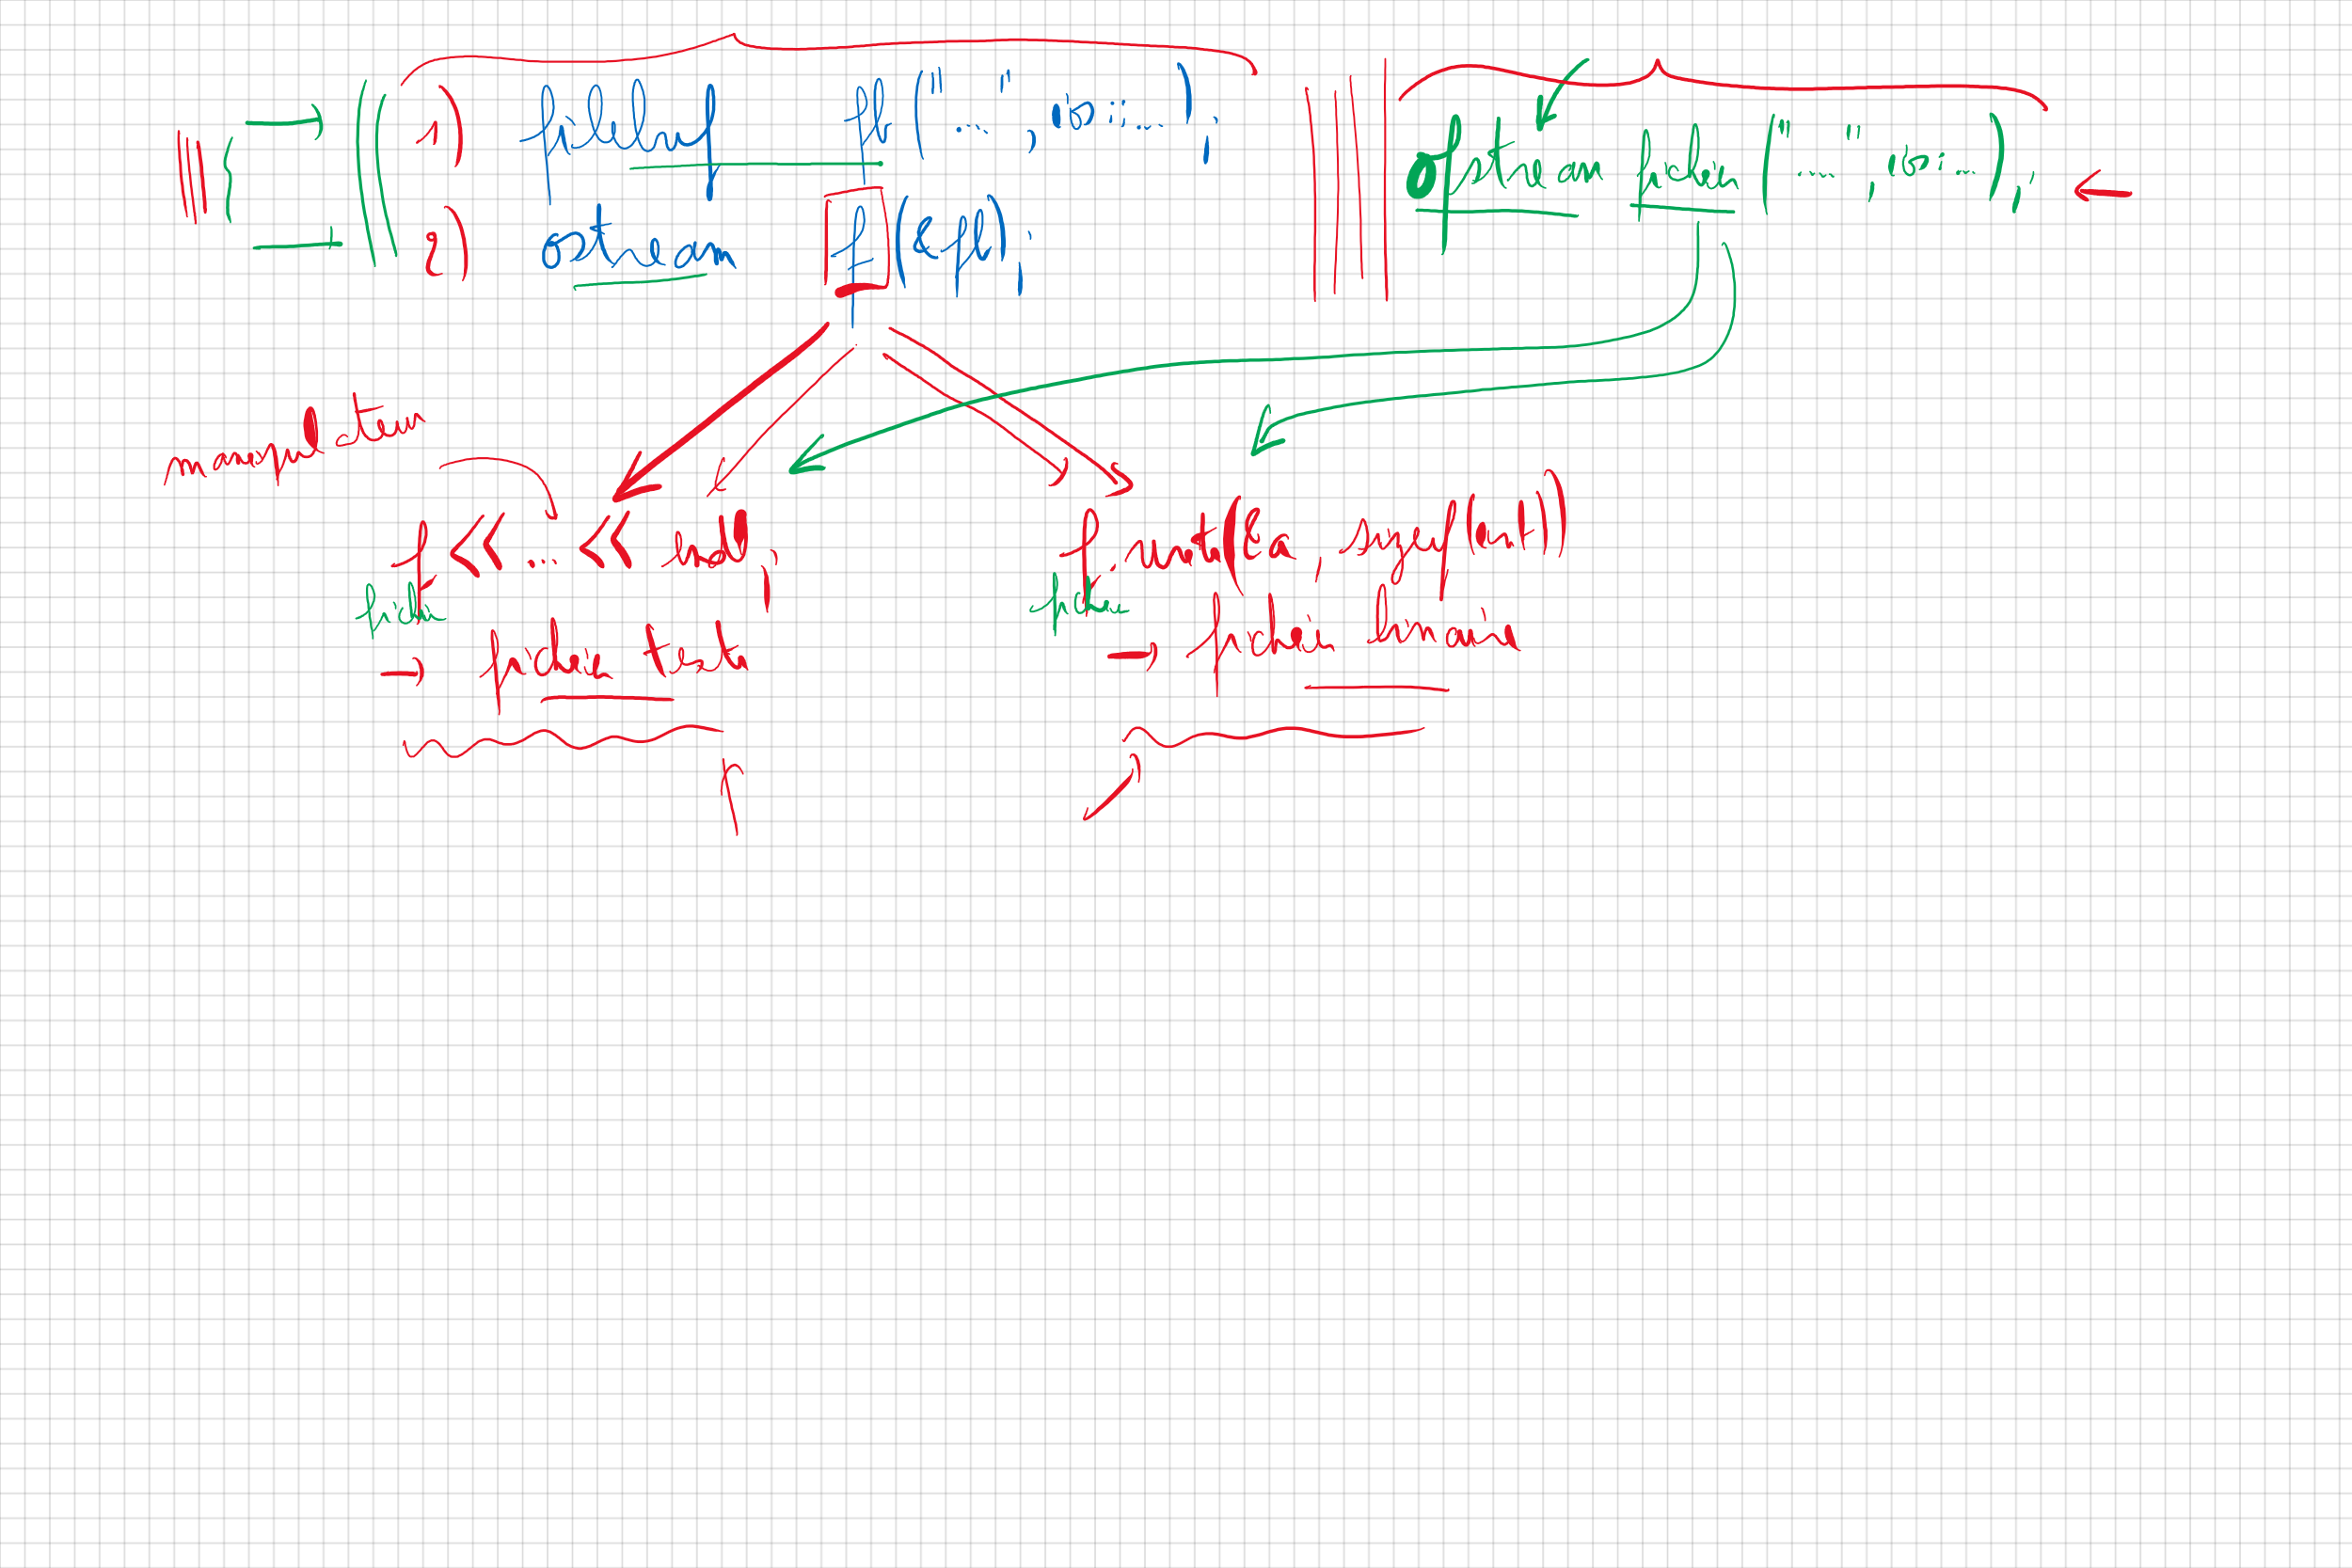 1) filebuf fb("...", ios::...);
2) ostream f(&fb);
ofstream fichier("....", ios:: ...);
manipulateur
f << ... << endl;
fichier
→ fichier texte
f.write(&a, sizeof(int))
fichier
→ fichier binaire